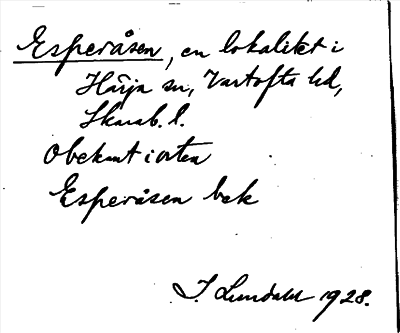 Esperåsen, en lokalitet i
Härja sn, Vartofta hd,
Skarab. l.
Obekant i orten
Esperåsen bek
I. Lundahl 1928.